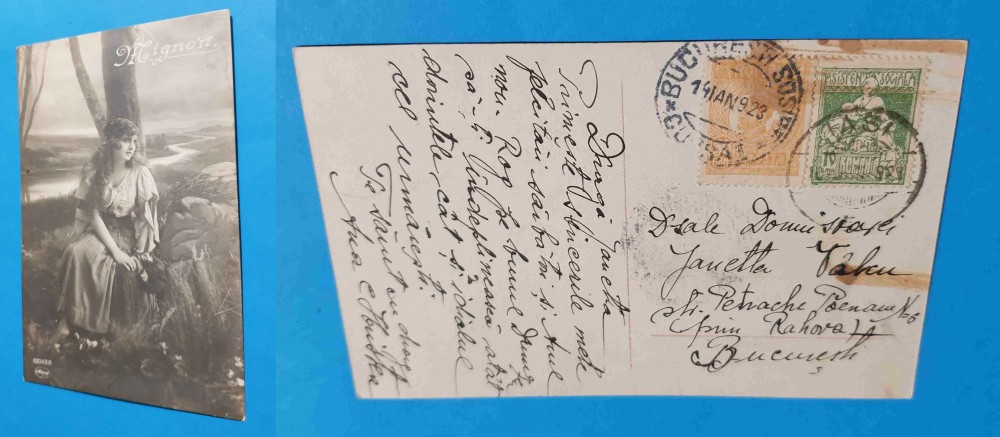 Mignon.
Dragă Janeta
Primește sincerile mele
felicitări sărbători și Anul
nou. Rog pe bunul Dumne
să-ți îndeplinească atât
dorințele, cât și idealul
cel urmărești.
Te sărut cu drag
Ana
BUCUREȘTI SOSIRE
14 IAN 923
ASISTENȚA SOCIALĂ
IAȘI
Dsale Domnișoarei
Janetta Vâlcu
str. Petrache Poenaru N-6
(prin Rahova)
București